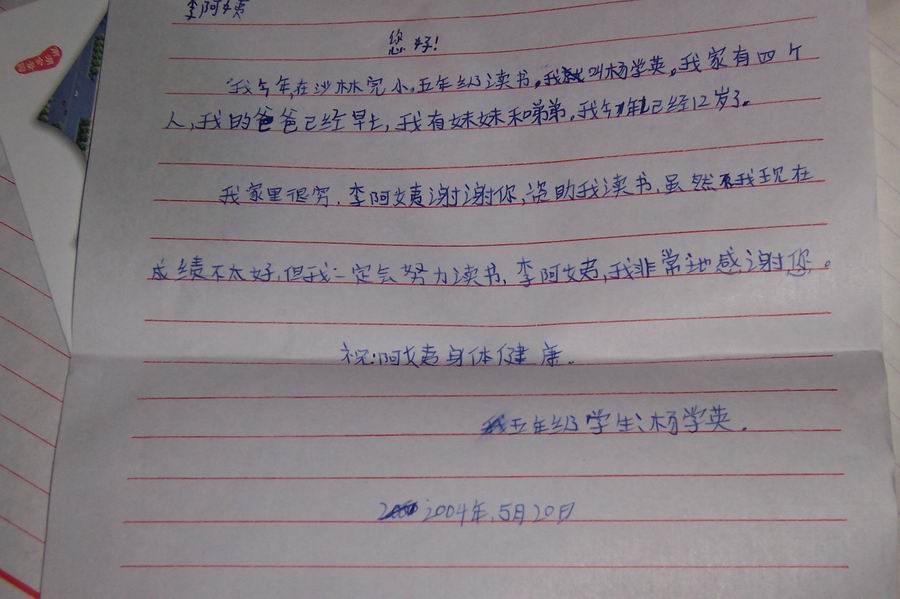 李阿姨
您好!
我今年,在沙林完小,五年级读书,我就叫杨学英,我家有四个
人,我的爸爸已经早亡,我有妹妹和弟弟,我今年已经12岁了。
我家里很穷,李阿姨谢谢你,资助我读书,虽然我现在
成绩不太好,但我一定会努力读书,李阿姨,我非常地感谢您。
祝:阿姨身体健康.
五年级学生:杨学英.
2004年,5月20日